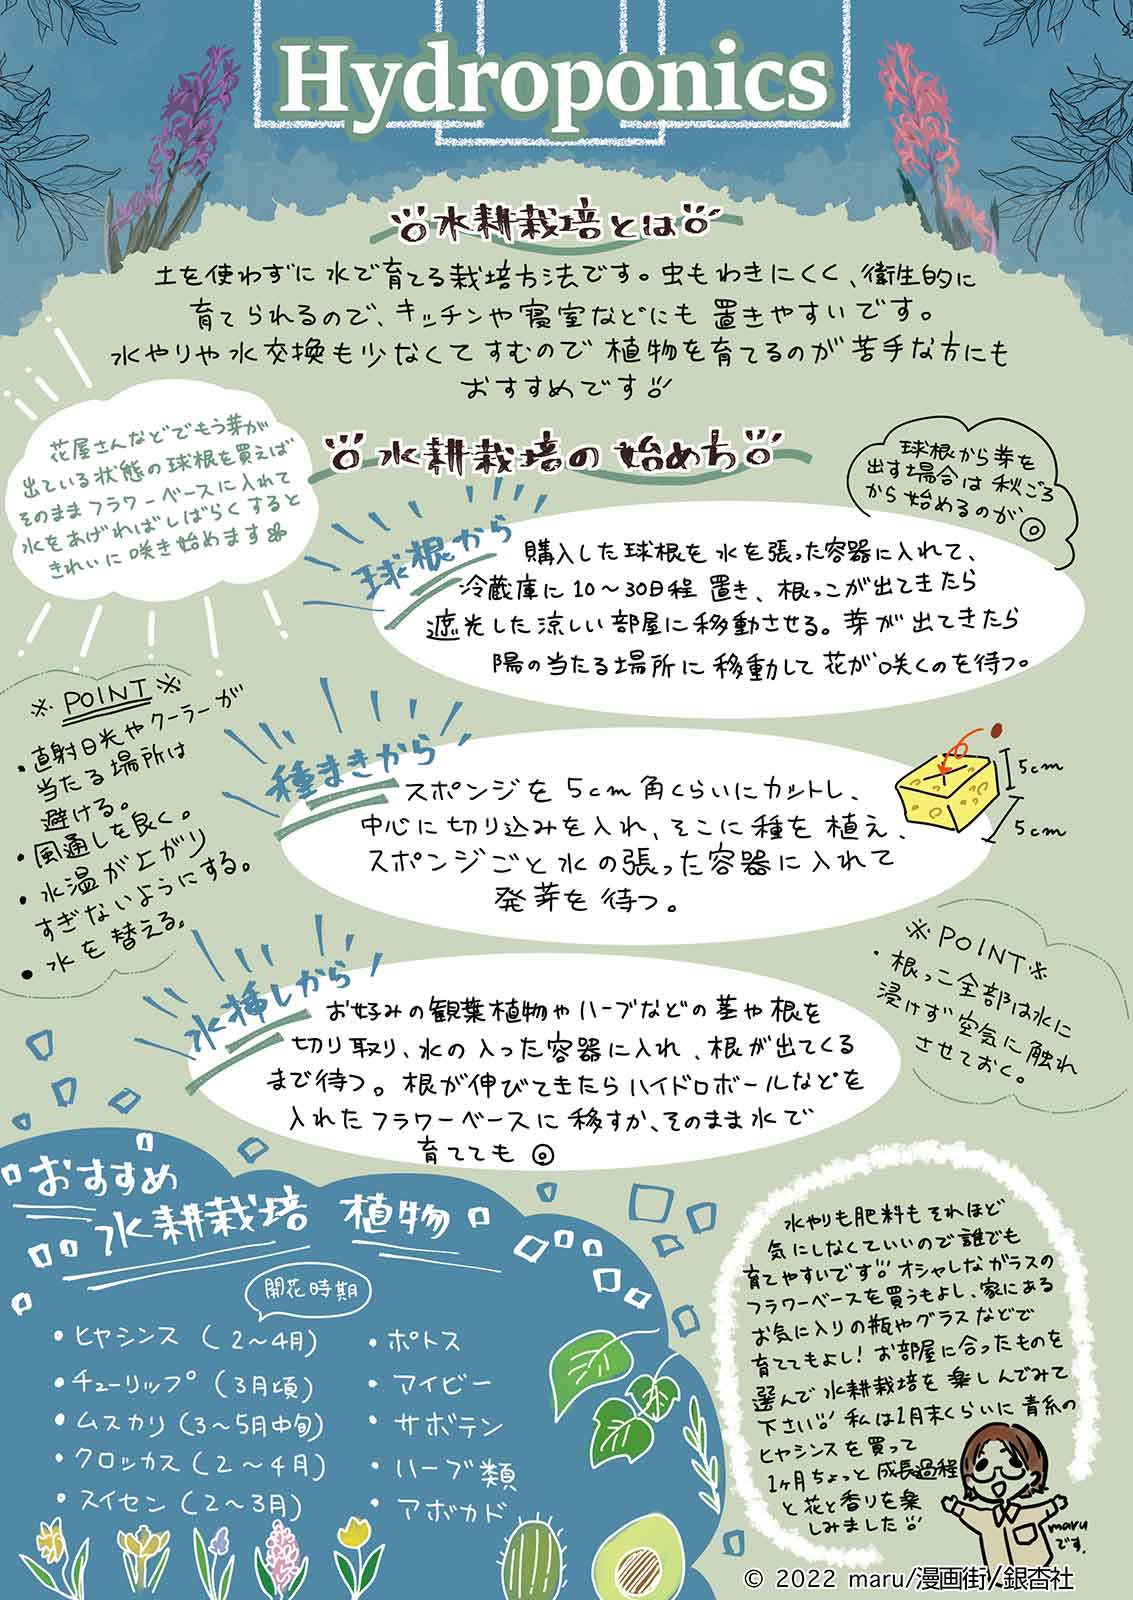 Hydroponics
水耕栽培とは
土を使わずに水で育てる栽培方法です。虫もわきにくく、衛生的に
育てられるので、キッチンや寝室などにも置きやすいです。
水やりや水交換も少なくてすむので植物を育てるのが苦手な方にも
おすすめです
花屋さんなどでもう芽が
出ている状態の球根を買えば
そのままフラワーベースに入れて
水をあげればしばらくすると
きれいに咲き始めます
水耕栽培の始め方
球根から芽を
出す場合は秋ごろ
から始めるのが◎
球根から
購入した球根を水を張った容器に入れて、
冷蔵庫に10〜30日程置き、根っこが出てきたら
遮光した涼しい部屋に移動させる。芽が出てきたら
陽の当たる場所に移動して花が咲くのを待つ。
※POINT※
・直射日光やクーラーが
当たる場所は
避ける。
・風通しを良く。
・水温が上がり
すぎないようにする。
・水を替える。
種まきから
スポンジを5cm角くらいにカットし、
中心に切り込みを入れ、そこに種を植え、
スポンジごと水の張った容器に入れて
発芽を待つ。
5cm
5cm
※POINT※
・根っこ全部は水に
浸けず空気に触れ
させておく。
水挿しから
お好みの観葉植物やハーブなどの茎や根を
切り取り、水の入った容器に入れ、根が出てくる
まで待つ。根が伸びてきたらハイドロボールなどを
入れたフラワーベースに移すか、そのまま水で
育てても◎
おすすめ
水耕栽培 植物
開花時期
・ヒヤシンス(2〜4月)
・チューリップ(3月頃)
・ムスカリ(3〜5月中旬)
・クロッカス(2〜4月)
・スイセン(2〜3月)
・ポトス
・アイビー
・サボテン
・ハーブ類
・アボカド
水やりも肥料もそれほど
気にしなくていいので誰でも
育てやすいです オシャレなガラスの
フラワーベースを買うもよし、家にある
お気に入りの瓶やグラスなどで
育ててもよし！お部屋に合ったものを
選んで水耕栽培を楽しんでみて
下さい 私は1月末くらいに青系の
ヒヤシンスを買って
1ヶ月ちょっと成長過程
と花と香りを楽
しみました
maru
です。
© 2022 maru/漫画街/銀杏社